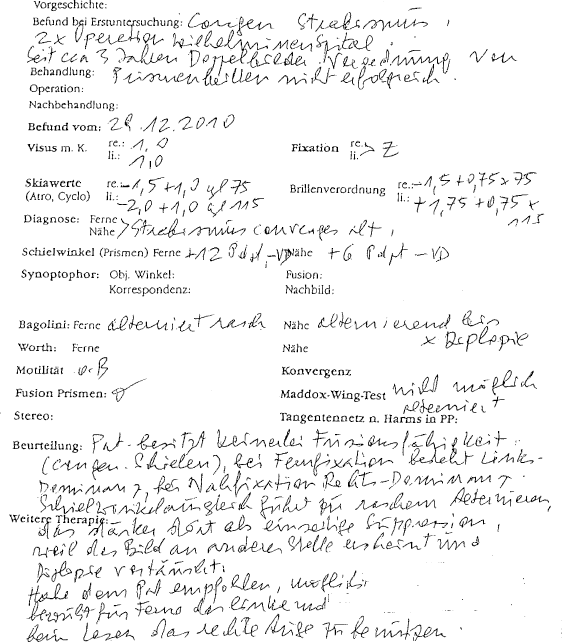 Vorgeschichte:
Befund bei Erstuntersuchung: Congen Strabismus,
2x Operation Wilhelminenspital.
Seit ca 3 Jahren Doppelbilder. Verordnung von
Behandlung: Prismenbrillen nicht erfolgreich.
Operation:
Nachbehandlung:
Befund vom: 29.12.2010
Visus m. K. re.: 1,0 Fixation re. > Z
li.: 1,0 li.
Skiawerte re.: -1,5 +1,0 zyl 75 Brillenverordnung re.: -1,5 +0,75 x 75
(Atro, Cyclo) li.: -2,0 +1,0 zyl 115 li.: +1,75 +0,75 x 115
Diagnose: Ferne > Strabismus convergens alt,
Nähe
Schielwinkel (Prismen) Ferne +12 Pdpt, -VD Nähe +6 Pdpt -VD
Synoptophor: Obj. Winkel: Fusion:
Korrespondenz: Nachbild:
Bagolini: Ferne alterniert rasch Nähe alternierend bis
x Diplopie
Worth: Ferne Nähe
Motilität o.B Konvergenz
Fusion Prismen: ∅ Maddox-Wing-Test nicht möglich
alterniert
Stereo: Tangentennetz n. Harms in PP:
Beurteilung: Pat. besitzt keinerlei Fusionsfähigkeit.
(congen. Schielen), bei Fernfixation besteht Links-
Dominanz, bei Nahfixation Rechts-Dominanz.
Schielwinkelausgleich führt zu raschem Alternieren,
Weitere Therapie: das stärker stört als einseitige Suppression,
weil das Bild an anderer Stelle erscheint und
Diplopie vortäuscht.
Habe dem Pat empfohlen, möglichst
bewußt für Ferne das linke und
beim Lesen das rechte Auge zu benützen.